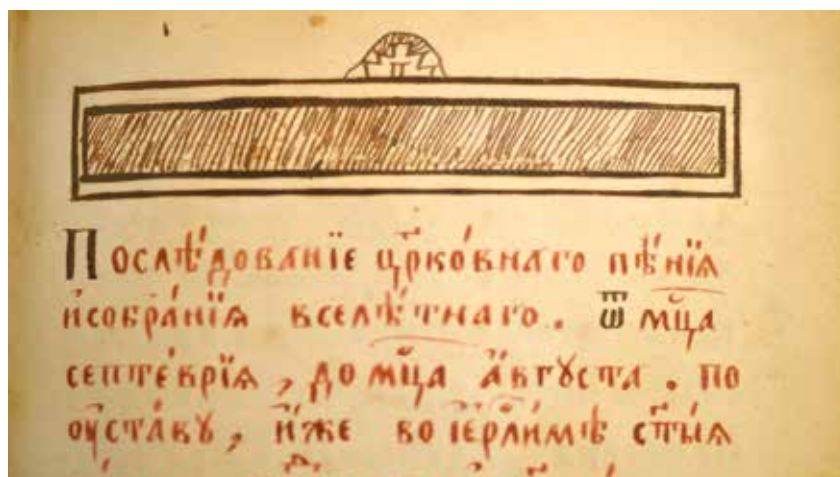 Послѣ́дованїе цр҃ко́внаго пѣ́нїѧ
и҆собра́нїѧ вселѣ́тнаго. ѿ мц҃а
септе́врїѧ, до мц҃а а҆́вгꙋста. по
оу҆ста́вꙋ, и҆́же во і҆ерⷭ҇ли́мѣ ст҃ы́ѧ